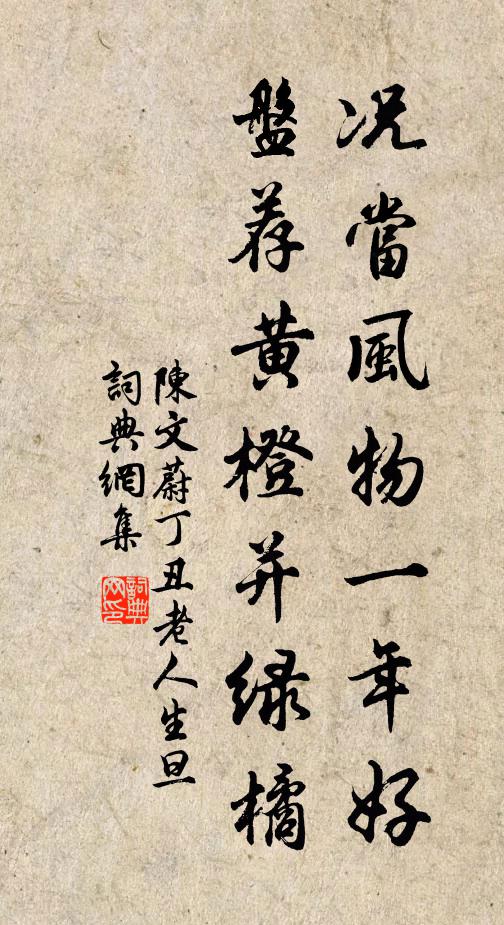 况當風物一年好
盤荐黄橙并緑橘
陳文蔚丁丑老人生旦
詞典網集
詞典
网印